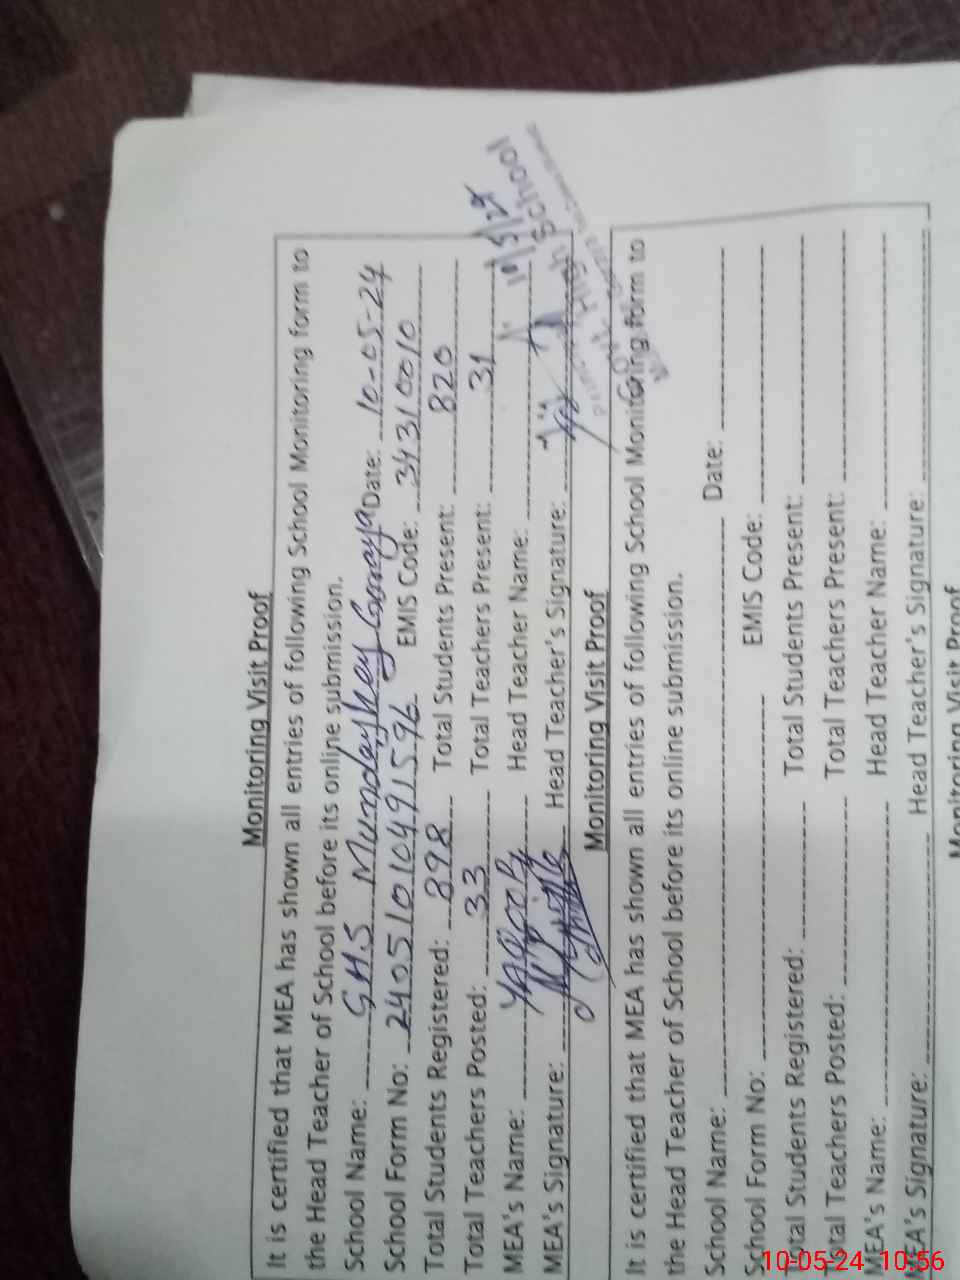 Monitoring Visit Proof
It is certified that MEA has shown all entries of following School Monitoring form to
the Head Teacher of School before its online submission.
School Name: GHS Mundaykey Goraya Date: 10-05-24
School Form No: 240510104915596 EMIS Code: 34310010
Total Students Registered: 898 Total Students Present: 820
Total Teachers Posted: 33 Total Teachers Present: 31
MEA's Name: YAQOOB Head Teacher Name:
MEA's Signature: Head Teacher's Signature:
10/5/24
High School
Monitoring Visit Proof
It is certified that MEA has shown all entries of following School Monitoring form to
the Head Teacher of School before its online submission.
School Name: Date:
School Form No: EMIS Code:
Total Students Registered: Total Students Present:
Total Teachers Posted: Total Teachers Present:
MEA's Name: Head Teacher Name:
MEA's Signature: Head Teacher's Signature:
Monitoring Visit Proof
10-05-24 10:56